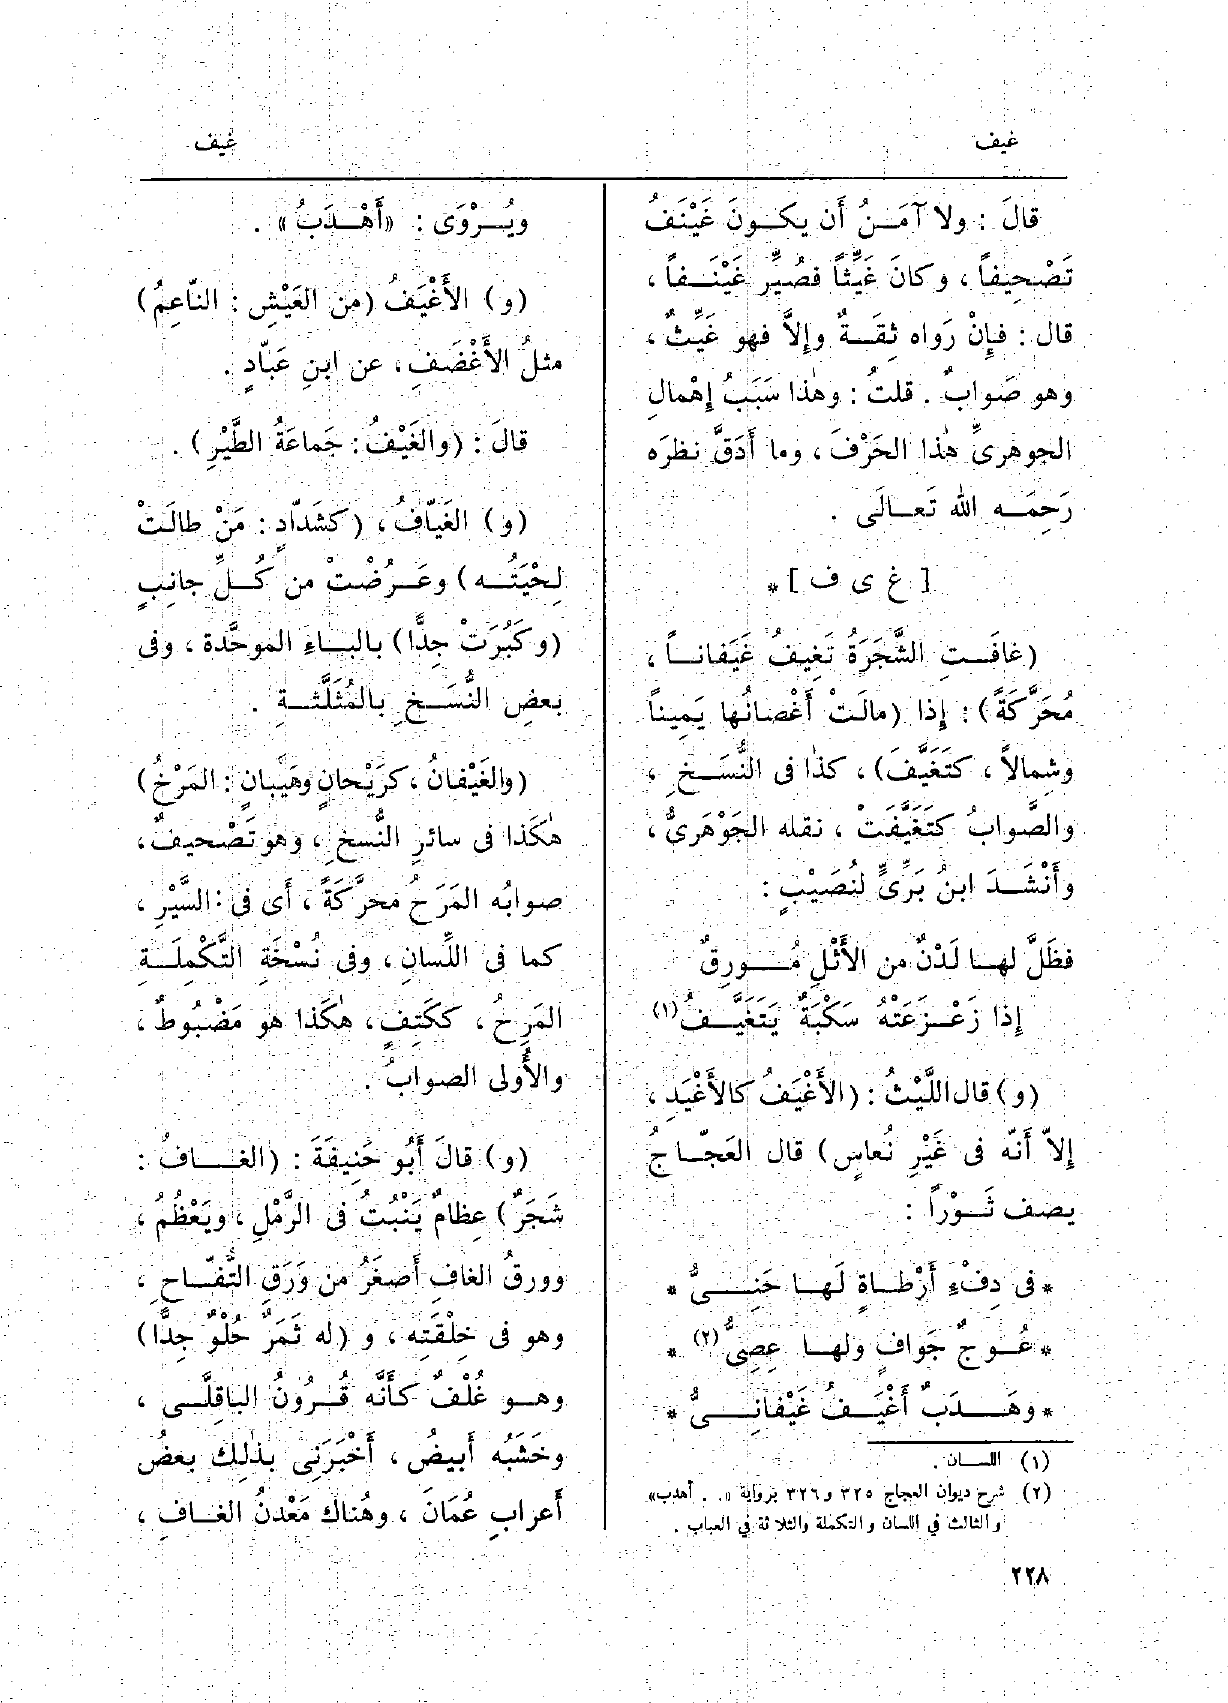 غيف
غيف
قالَ : ولا آمَنُ أَن يكونَ غَيْنَفُ
تَصْحِيفاً ، وكانَ غَيِّثاً فصُيِّر غَيْنَفاً ،
قال : فإِنْ رَواه ثِقَةٌ وإِلاَّ فهو غَيِّثٌ ،
وهو صَوابٌ . قلتُ : وهٰذا سَبَبُ إِهْمالِ
الجوهرىِّ هٰذا الحَرْفَ ، وما أَدَقَّ نظرَه
رَحِمَه الله تَعالَى .
[ غ ى ف ] *
(غافَتِ الشَّجَرَةُ تَغِيفُ غَيَفاناً ،
مُحَرَّكَةً) : إِذا (مالَتْ أَغْصانُها يَمِيناً
وشِمالاً ، كتَغَيَّفَ) ، كذا فى النُّسَخِ ،
والصَّوابُ كتَغَيَّفَتْ ، نقله الجَوْهَرىُّ ،
وأَنْشَدَ ابنُ بَرِّىٍّ لنُصَيْبٍ :
فظَلَّ لها لَدْنٌ من الأَثْلِ مُورِقٌ
إِذا زَعْزَعَتْهُ سَكْبَةٌ يَتَغَيَّفُ (١)
(و) قال اللَّيْثُ : (الأَغْيَفُ كالأَغْيَدِ ،
إِلاّ أَنّه فى غَيْرِ نُعاسٍ) قال العَجّاجُ
يصف ثَوْراً :
* فى دِفْءِ أَرْطاةٍ لَها حَنِىُّ *
* عُوجٌ جَوافٍ ولها عِصِىُّ (٢) *
* وهَدَبٌ أَغْيَفُ غَيْفانِىُّ *
(١) اللسان .
(٢) شرح ديوان العجاج ٣٢٥ و٣٢٦ برواية « . . أهدب»
والثالث في اللسان والتكملة والثلاثة في العباب .
ويُرْوَى : «أَهْدَبُ» .
(و) الأَغْيَفُ (من العَيْشِ : النّاعِمُ)
مثلُ الأَغْضَفِ ، عن ابنِ عَبّادٍ .
قالَ : (والغَيْفُ : جَماعَةُ الطَّيْرِ) .
(و) الغَيّافُ ، (كشَدّادٍ : مَنْ طالَتْ
لِحْيَتُه) وعَرُضْتْ من كُلِّ جانِبٍ
(وكَبُرَتْ جِدًّا) بالباءِ الموحَّدة ، وفى
بعضِ النُّسَخِ بالمُثَلَّثةِ .
(والغَيْفانُ ، كرَيْحانٍ وهَيَّبانٍ : المَرْخُ)
هٰكَذا فى سائرِ النُّسخِ ، وهو تَصْحيفٌ ،
صوابُه المَرَحُ محرَّكَةً ، أَى فى : السَّيْرِ ،
كما فى اللِّسانِ ، وفى نُسْخَةِ التَّكْمِلَةِ
المَرِحُ ، ككَتِفٍ ، هٰكَذا هو مَضْبُوطٌ ،
والأُولى الصوابُ .
(و) قالَ أَبُو حَنِيفَةَ : (الغافُ :
شَجَرٌ) عِظامٌ يَنْبُتُ فى الرَّمْلِ ، ويَعْظُمُ ،
وورقُ الغافِ أَصغَرُ من وَرَقِ التُّفّاحِ ،
وهو فى خِلْقَتِه ، و (له ثَمَرٌ حُلْوٌ جِدًّا)
وهو غُلْفٌ كأَنَّه قُرُونُ الباقِلَّى ،
وخَشَبُه أَبيضُ ، أَخْبَرَنِى بذٰلِك بعضُ
أَعرابِ عُمَانَ ، وهُناك مَعْدِنُ الغافِ ،
٢٢٨